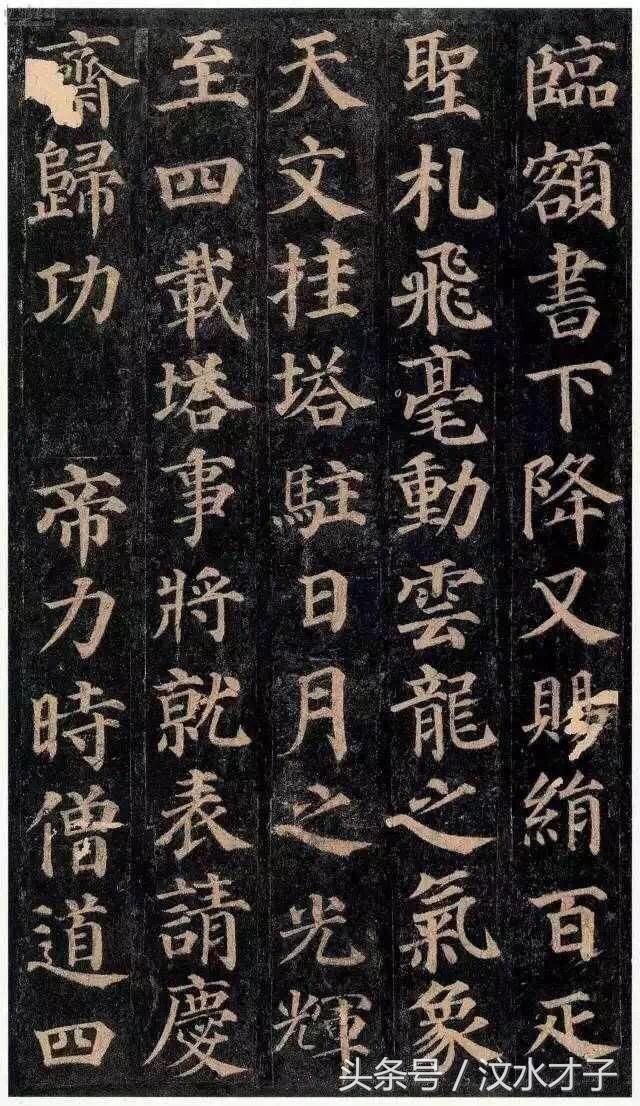 臨額書下降又賜絹百疋
聖札飛毫動雲龍之氣象
天文挂塔駐日月之光輝
至四載塔事將就表請慶
齋歸功 帝力時僧道四
头条号 / 汶水才子